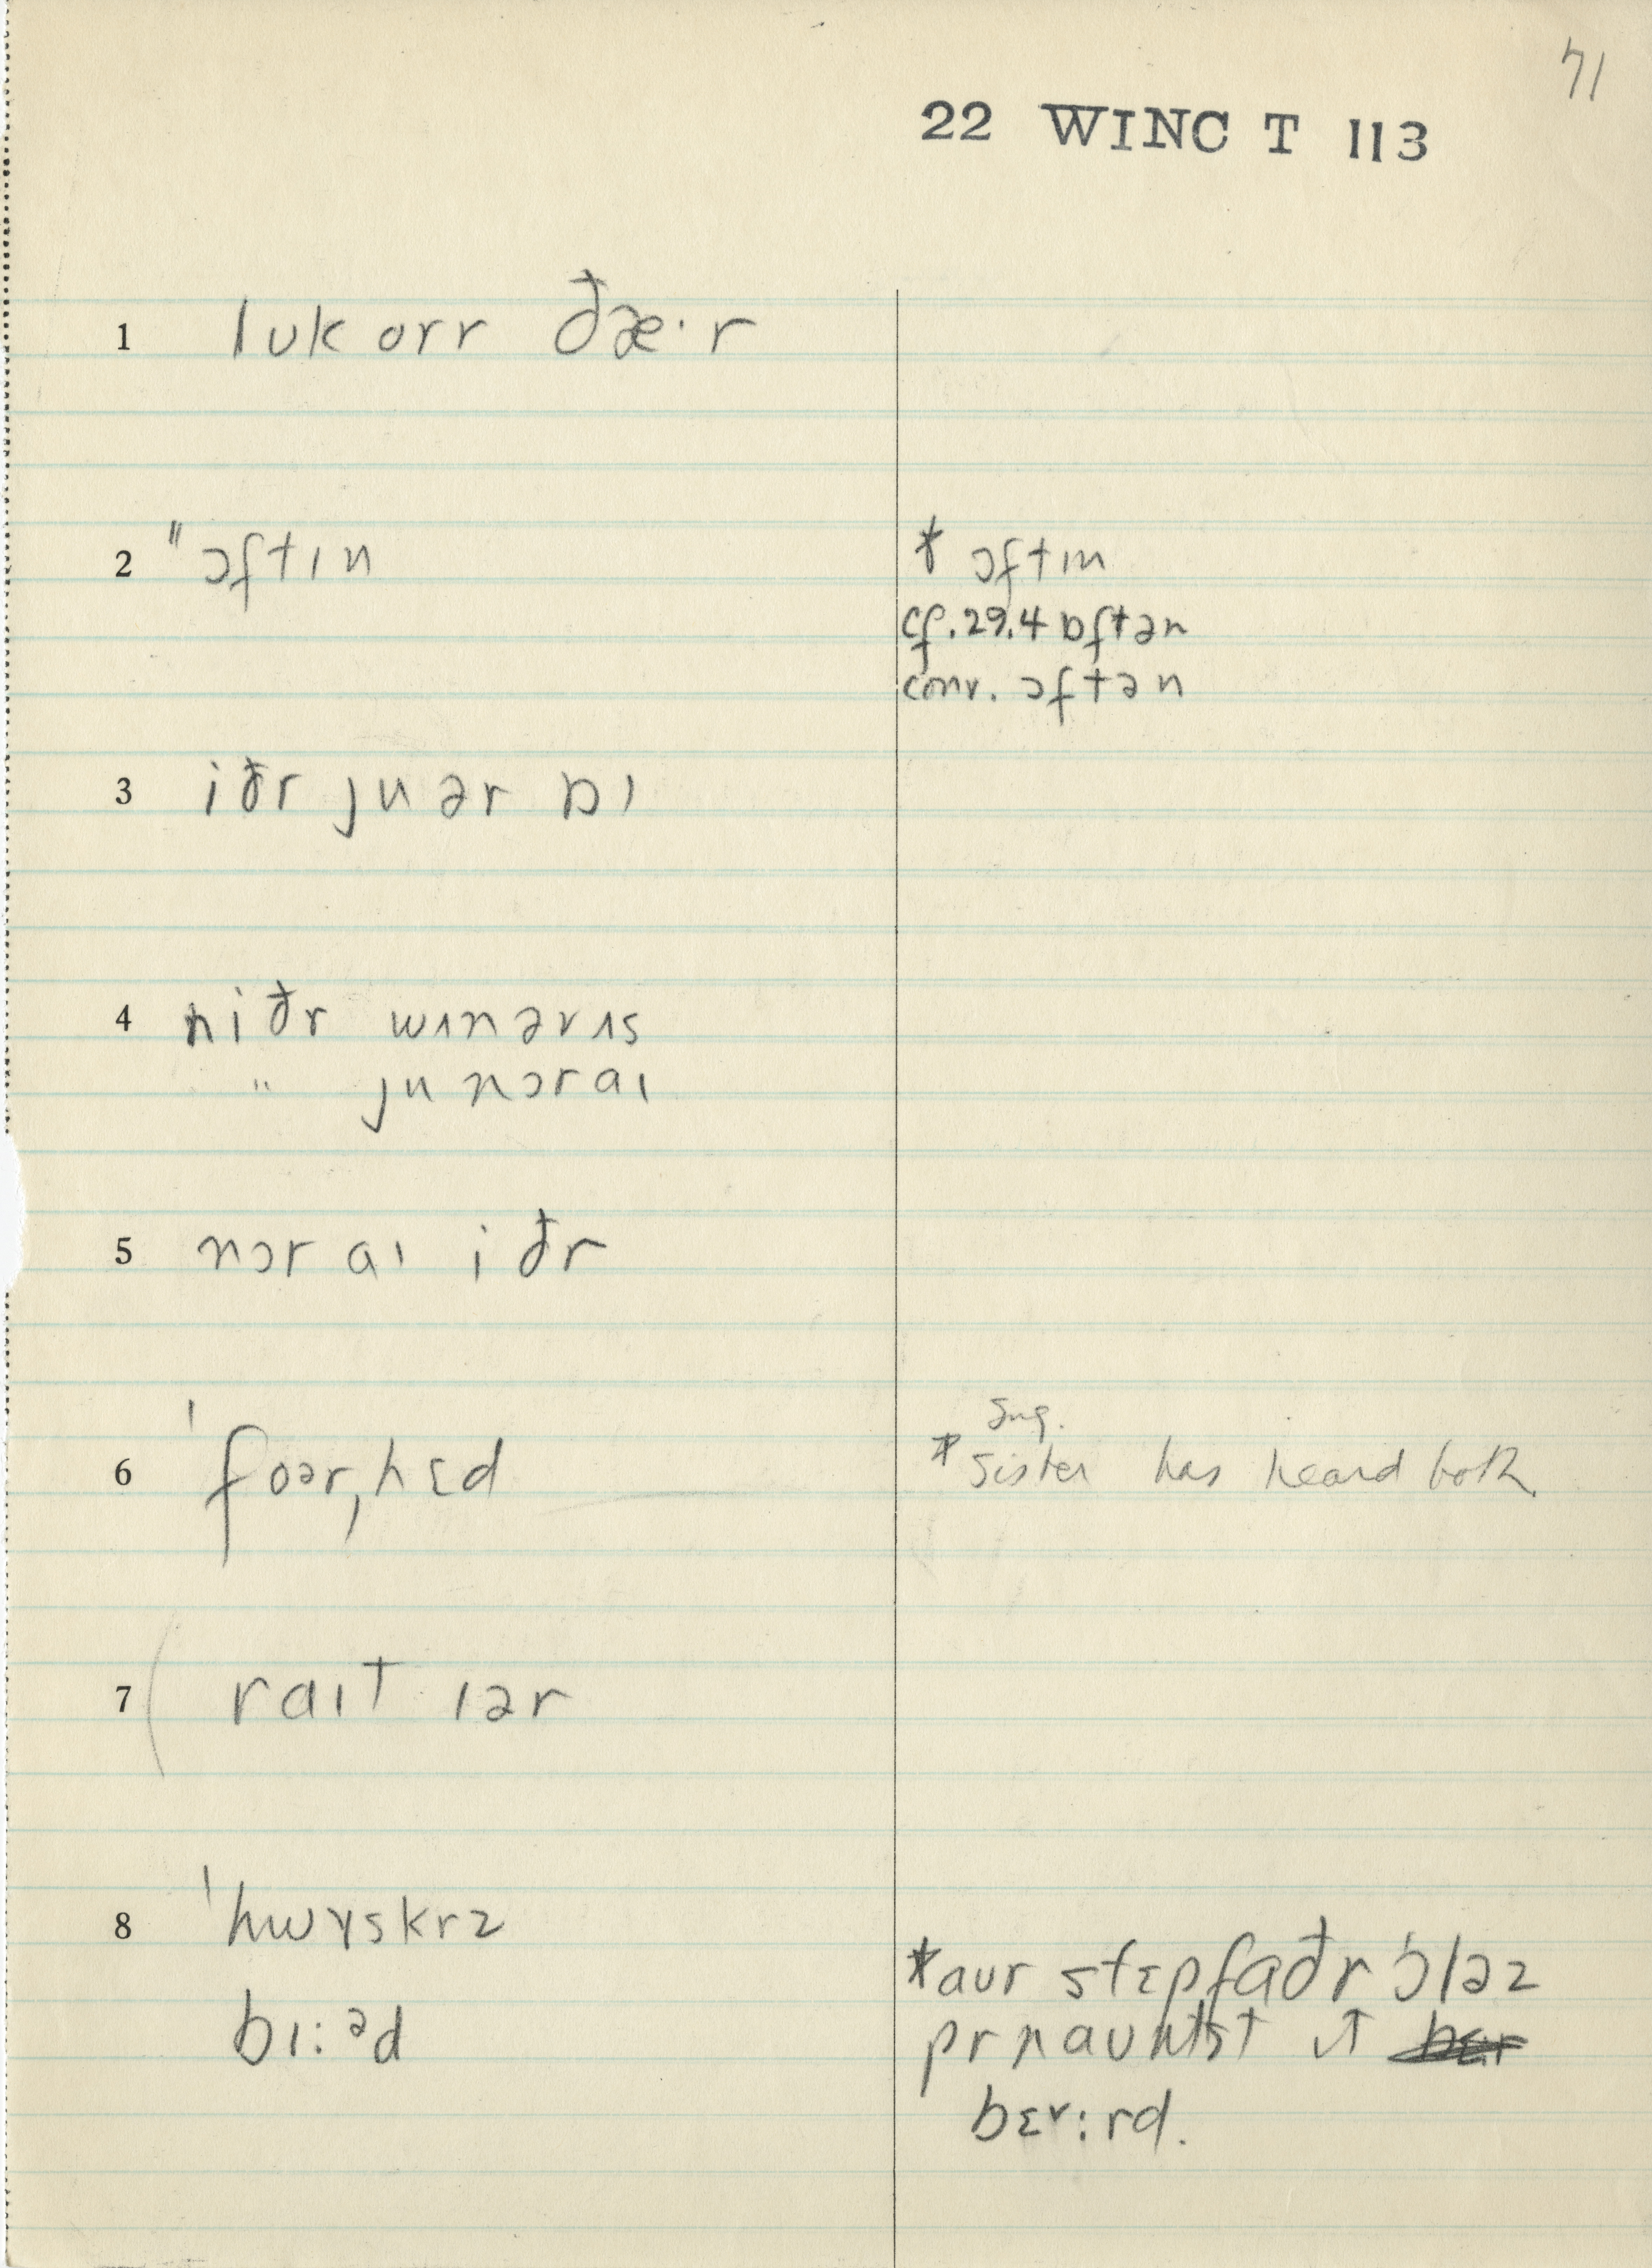 71
22 WINC T 113
1 lʊk orr ðæ·r
2 "ɔftɪn
* ɔftɪn
cf. 29.4 ɒftən
conv. ɔftən
3 iðr ju ər ɒɪ
4 niðr wɪnərɪs
" ju nɔr aɪ
5 nɔr aɪ iðr
6 ˈfoərˌhɛd
Sng.
* sister has heard both
7 ( raɪt ɪər
8 ˈhwɤskrz
bɪ:ᵊd
* aʊr stɛpfaðr ˈɔləz
prnaʊntst ɪt
bɛɤ:rd.